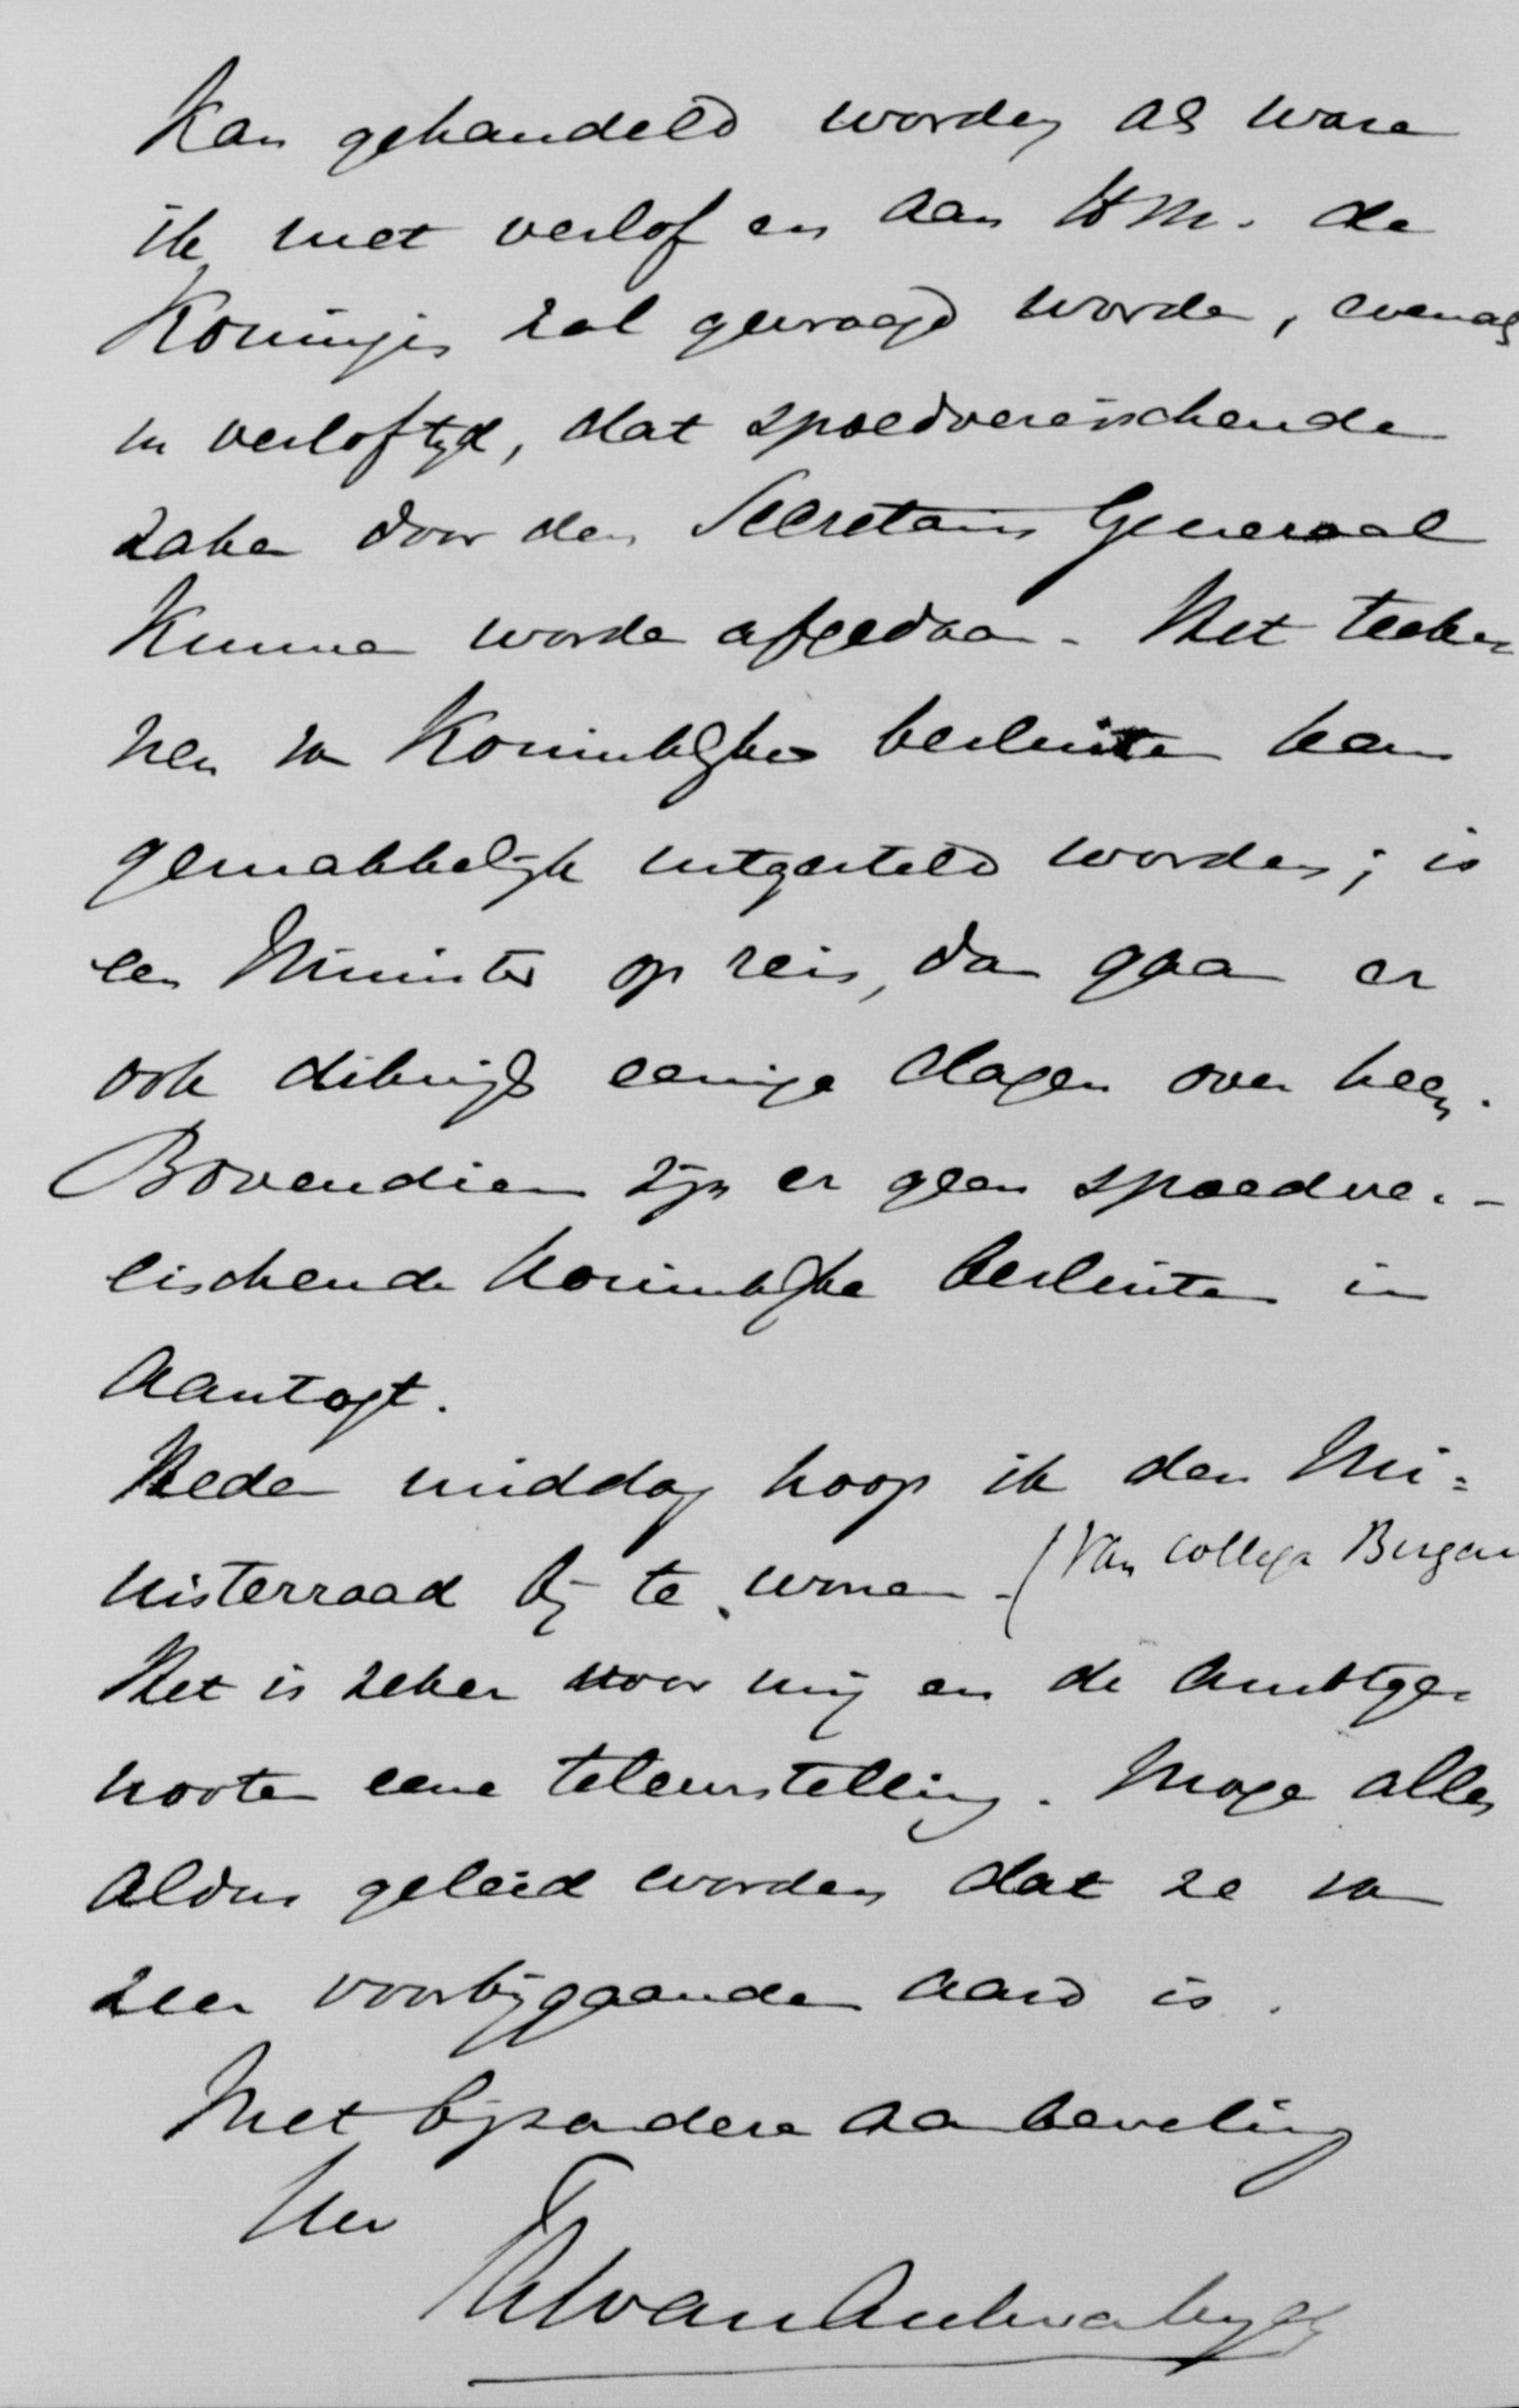 kan gehandeld worden als ware
ik met verlof en aan H.M. de
Koningin zal gevraagd worden, evenals
in verloftijd, dat spoedvereischende
zaken door den Secretaris Generaal
kunnen worden afgedaan. Het teeke
nen van Koninklijke besluiten kan
gemakkelijk uitgesteld worden; is
een Minister op reis, dan gaan er
ook dikwijls eenige dagen over heen.
Bovendien zijn er geen spoedver-
eischende Koninklijke besluiten in
aantogt.
Heden middag hoop ik den Mi=
nisterraad bij te wonen - (van collega Bergan
Het is zeker voor mij en de ambtge-
nooten eene teleurstelling. Moge alles
aldus geleid worden dat ze van
zeer voorbijgaanden aard is.
Met bijzondere aanbeveling
Uw